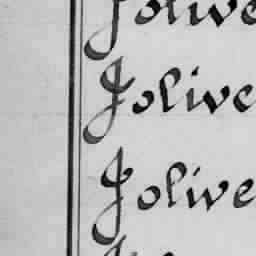 Jolive
Jolive
Jolive